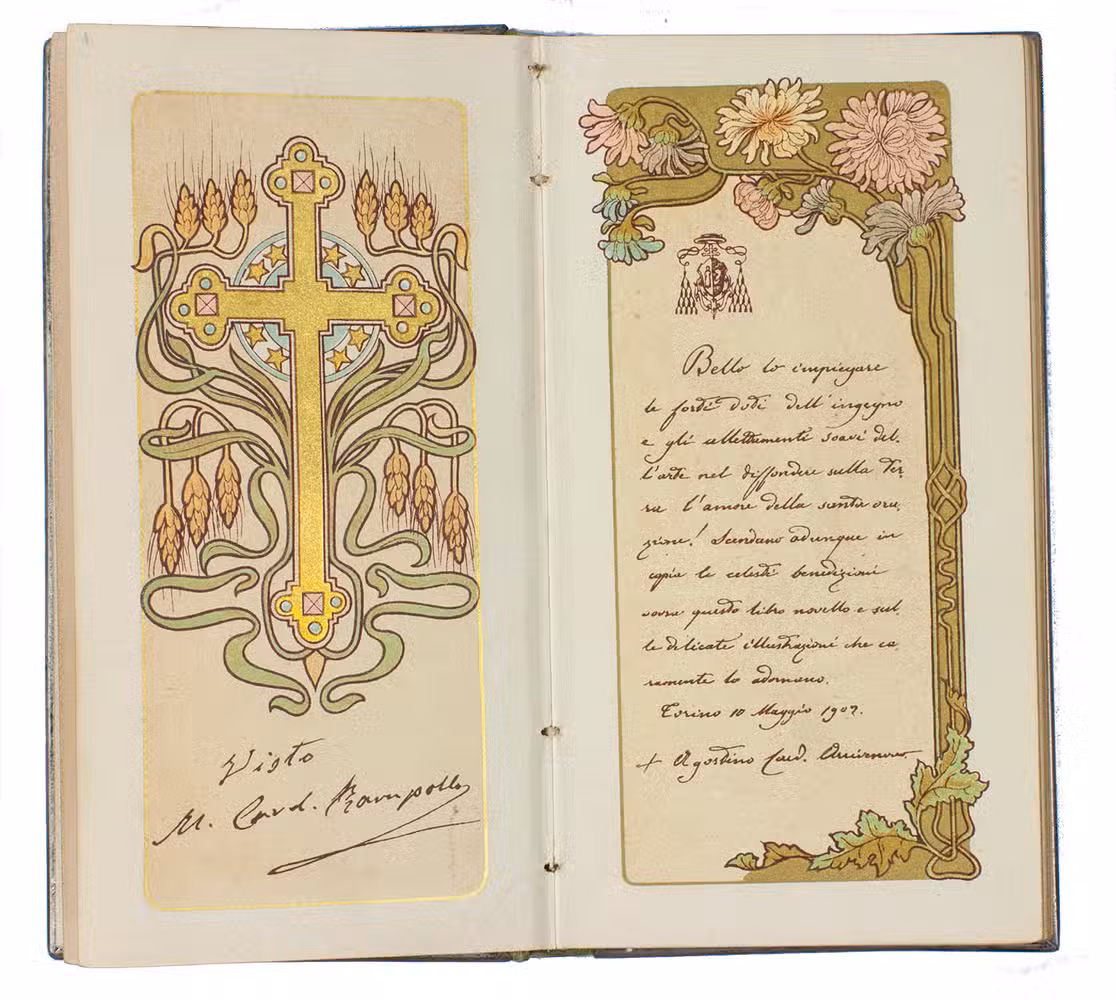 Visto
M. Card. Rampolla
Bello lo impiegare
le forti doti dell'ingegno
e gli allettamenti soavi del-
l'arte nel diffondere sulla ter-
ra l'amore della santa ora-
zione! Scendano adunque in
copia le celesti benedizioni
sovra questo libro novello e sul-
le delicate illustrazioni che ca-
ramente lo adornano.
Torino 10 Maggio 1907.
+ Agostino Card.